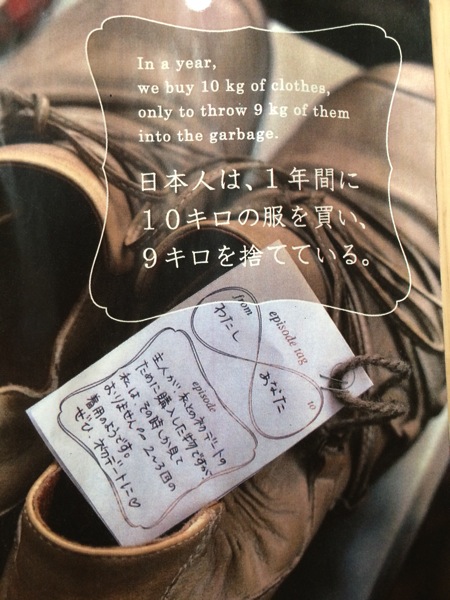 In a year,
we buy 10 kg of clothes,
only to throw 9 kg of them
into the garbage.
日本人は、1年間に
10キロの服を買い、
9キロを捨てている。
episode tag
from
わたし
to
あなた
episode
主人が 私との初デートの
ために購入した物ですが、
私は その時しか見て
おりません 2〜3回の
着用のようです。
ぜひ、初デートに♡